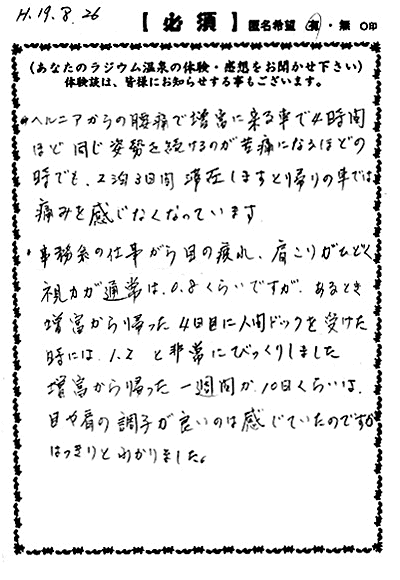 H.19.8.26
【必須】 匿名希望 有・無 ○印
(あなたのラジウム温泉の体験・感想をお聞かせ下さい)
体験談は、皆様にお知らせする事もございます。
・ヘルニアからの腰痛で増富に来る車で4時間
ほど 同じ姿勢を続けるのが苦痛になるほどの
時でも、2泊3日間 滞在しますと帰りの車では
痛みを感じなくなっています
・事務系の仕事から目の疲れ、肩こりがひどく
視力が通常は、0.8くらいですが、あるとき
増富から帰った4日目に人間ドックを受けた
時には 1.2 と非常にびっくりしました
増富から帰った一週間か、10日くらいは、
目や肩の調子が良いのは感じていたのですが
はっきりとわかりました。